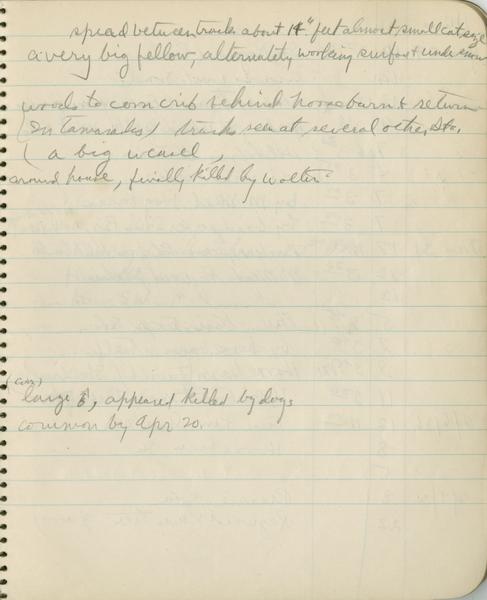 spread between tracks about 14" feet almost small cat size
a very big fellow, alternately working surface & under snow
woods to corn crib behind horse barn & return
In tamaracks / tracks seen at several other
( a big weasel,
around house, finally killed by Walter
large ♂, appeared killed by dogs
common by Apr 20.